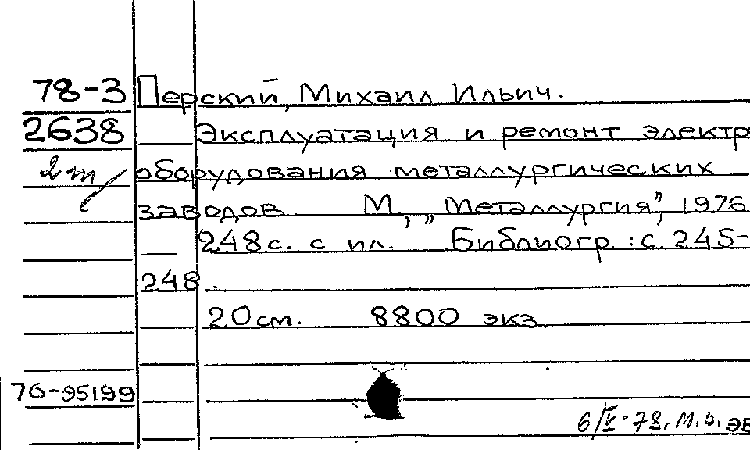 78-3 Перский, Михаил Ильич.
2638 Эксплуатация и ремонт электр
2т оборудования металлургических
заводов. М., „Металлургия", 1976
248 с. с ил. Библиогр.: с. 245-
248.
20 см. 8800 экз.
76-95199
6/V-78. М.